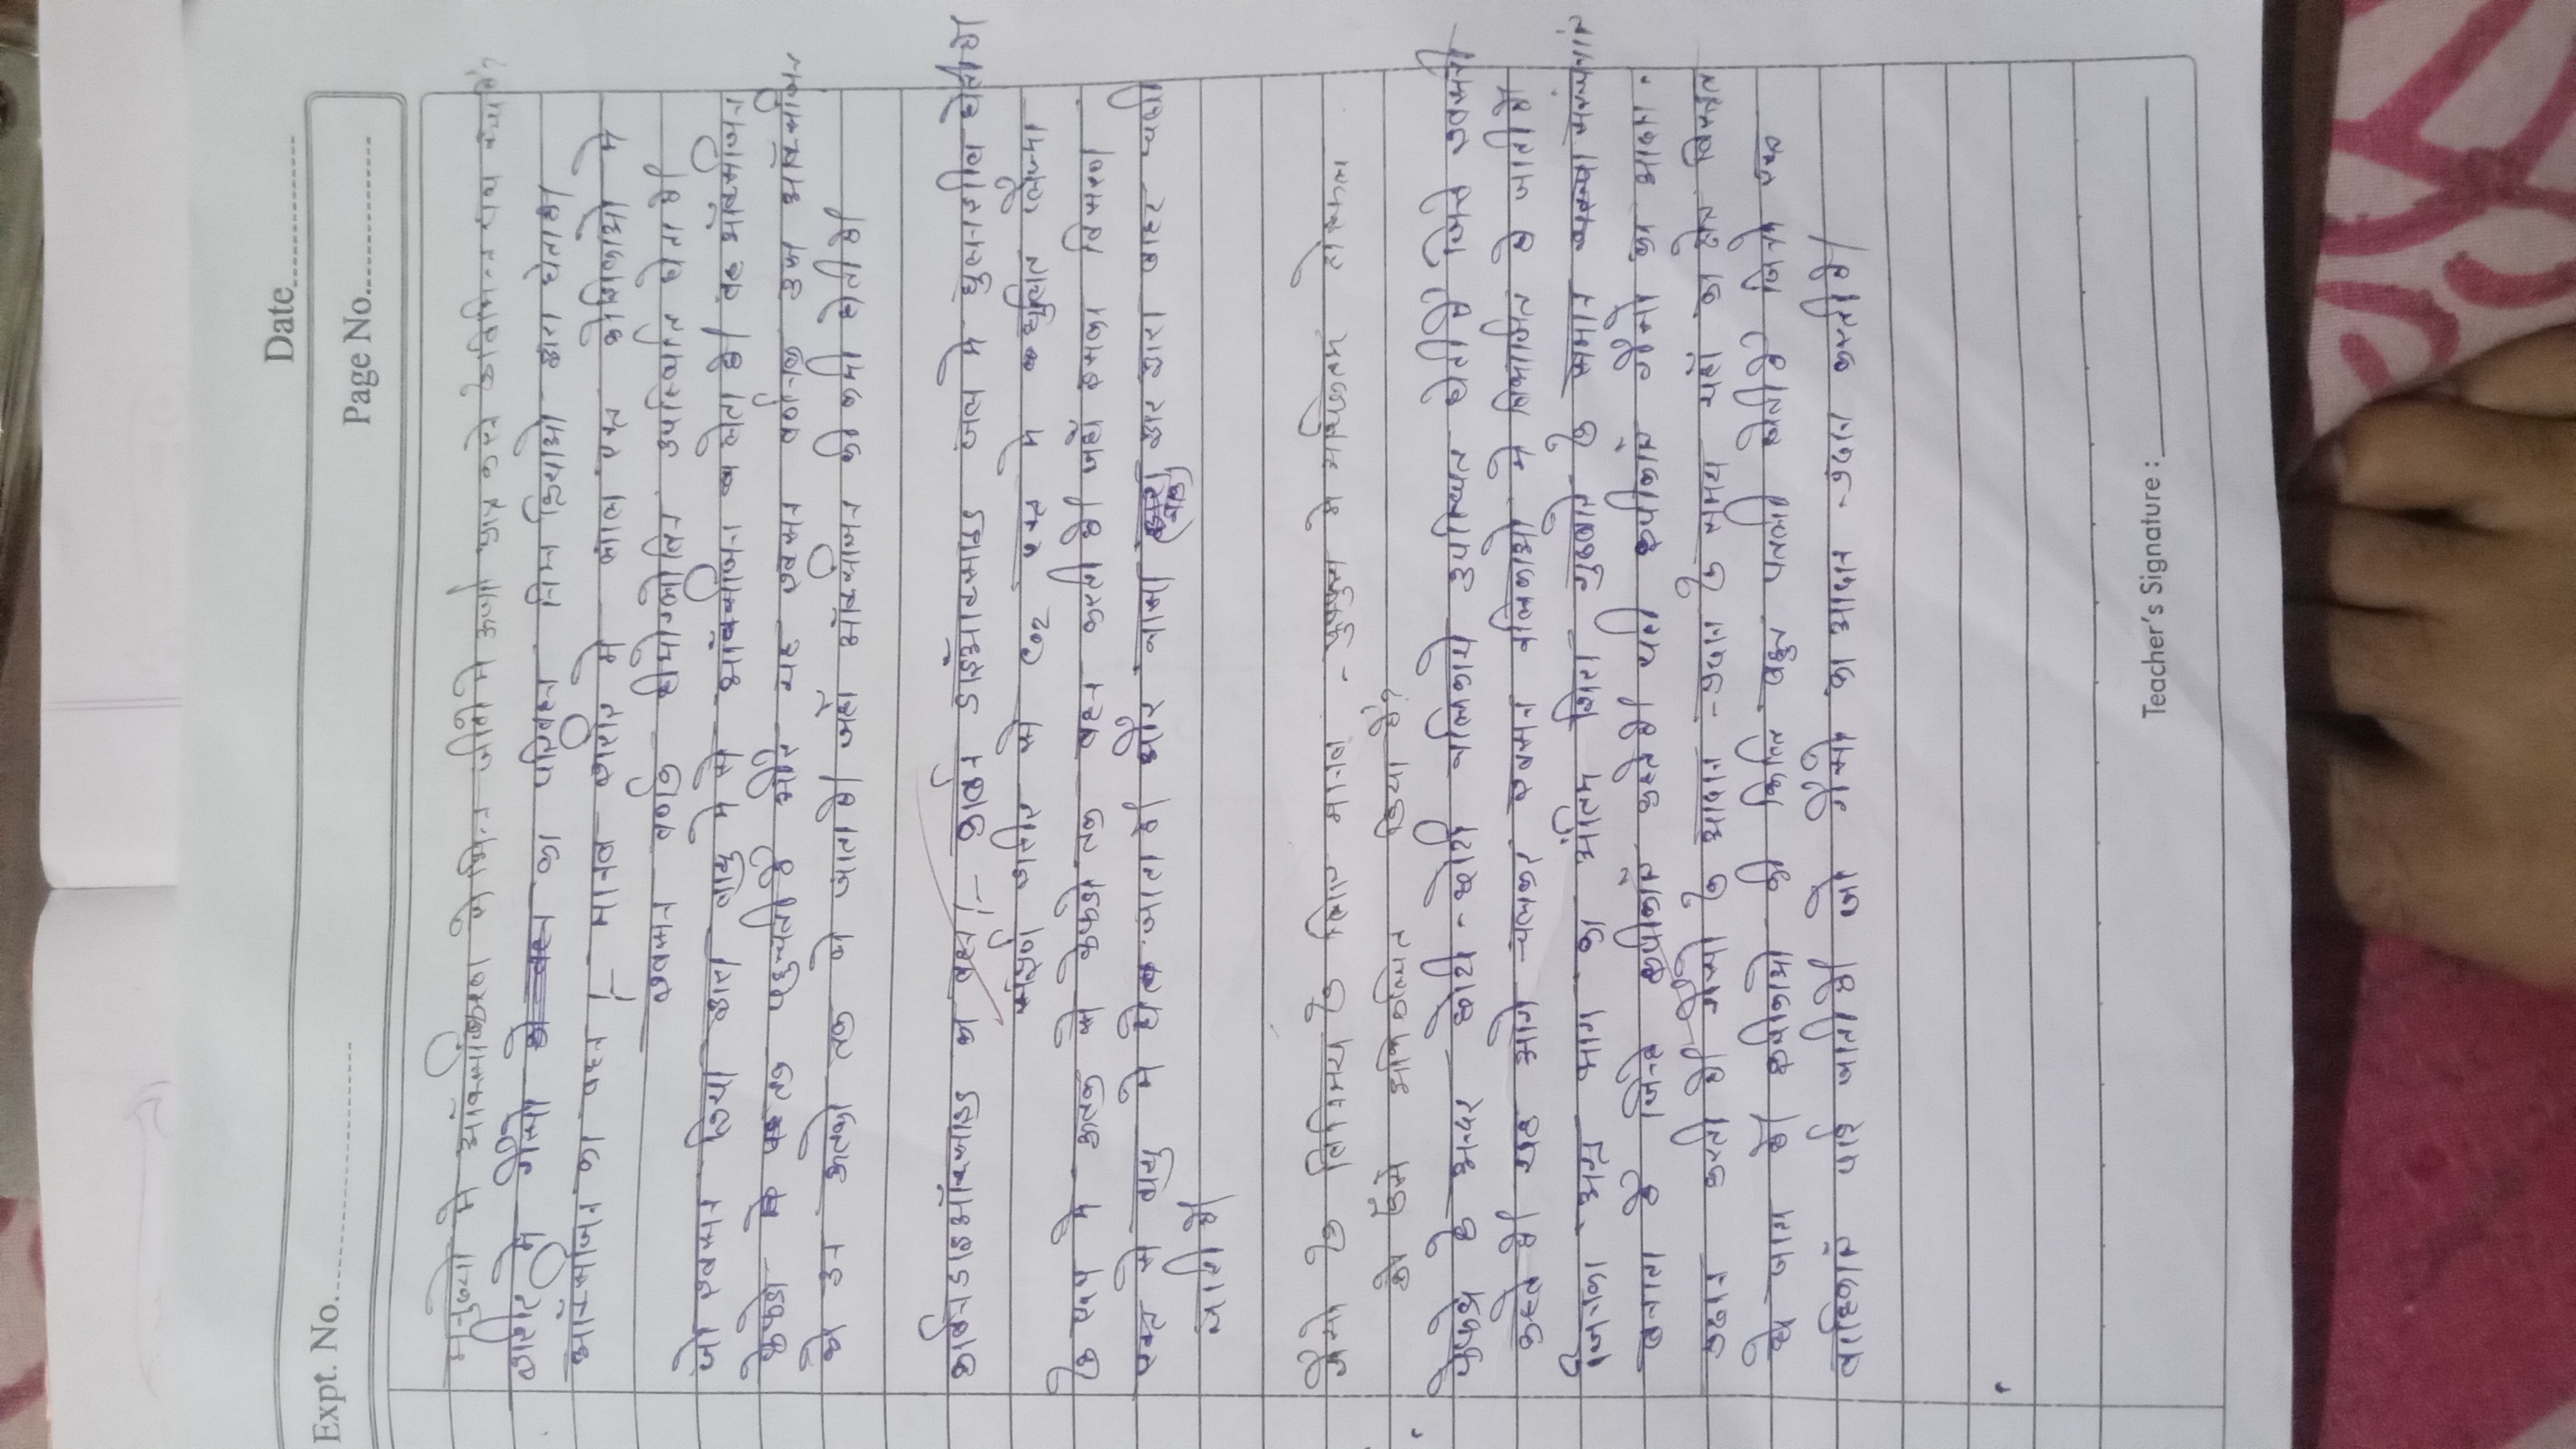 Date
Expt. No.
Page No.
मनुष्यो मे ऑक्सीकरण से भिन्न जीवो मे ऊर्जा प्राप्त करने के विभिन्न पथ क्या है?
शरीर मे गैसो का परिवहन निम्न क्रियाओ द्वारा होता है।
ऑक्सीजन का वहन :- मानव शरीर मे लाल रक्त कोशिकाओ मे
श्वसन वर्णक हीमोग्लोबिन उपस्थिति होता है।
जो श्वसन क्रिया द्वारा वायु मे से ऑक्सीजन लेता है। वह ऑक्सीजन
फेफडो के तक पहुचती है और यह श्वसन वर्णनक उस ऑक्सीजन
को उन ऊतको तक ले जाता है। जहाँ ऑक्सीजन की कमी होती है।
कार्बनडाइऑक्साइड का वहन :- कार्बन डाइऑक्साइड जल मे घुलनशील होती है।
संपूर्ण शरीर से CO2 रक्त मे घुलित प्लैज्मा
के रूप मे ऊतक से फेफडो तक वहन करती है। जहाँ इसका विसरण
रक्त से वायु मे हो जाता है। और नासा द्वार द्वारा बाहर चली
जाती है।
गैसो के विनिमय के लिए मानव - फुफ्फुस मे अधिकतम क्षेत्रफल
को कैसे अभिकल्पित किया है?
फेफडे के अन्दर छोटी - छोटी नलिकाये उपस्थित होती है जिन्हे श्वसनी
कहते है। यह आगे चलकर श्वसन नलिकाओ मे विभाजित हो जाती है।
जिनका अग्र भाग का अंतिम शिरा गुब्बारे के समान संरचनाएं
बनाता है जिन्हे कूपीकाएं कहते है। यही कूपीकाएं गैसो का आदान -
प्रदान करती है। गैसो के आदान - प्रदान के समय यहाँ का क्षेत्र विस्तृत
हो जाता है। कूपीकाओ की भित्ति बहुत पतली होती है जिनमे रक्त
वाहिकाएं पाई जाती है। जो गैसो का आदान - प्रदान करती है।
Teacher's Signature :